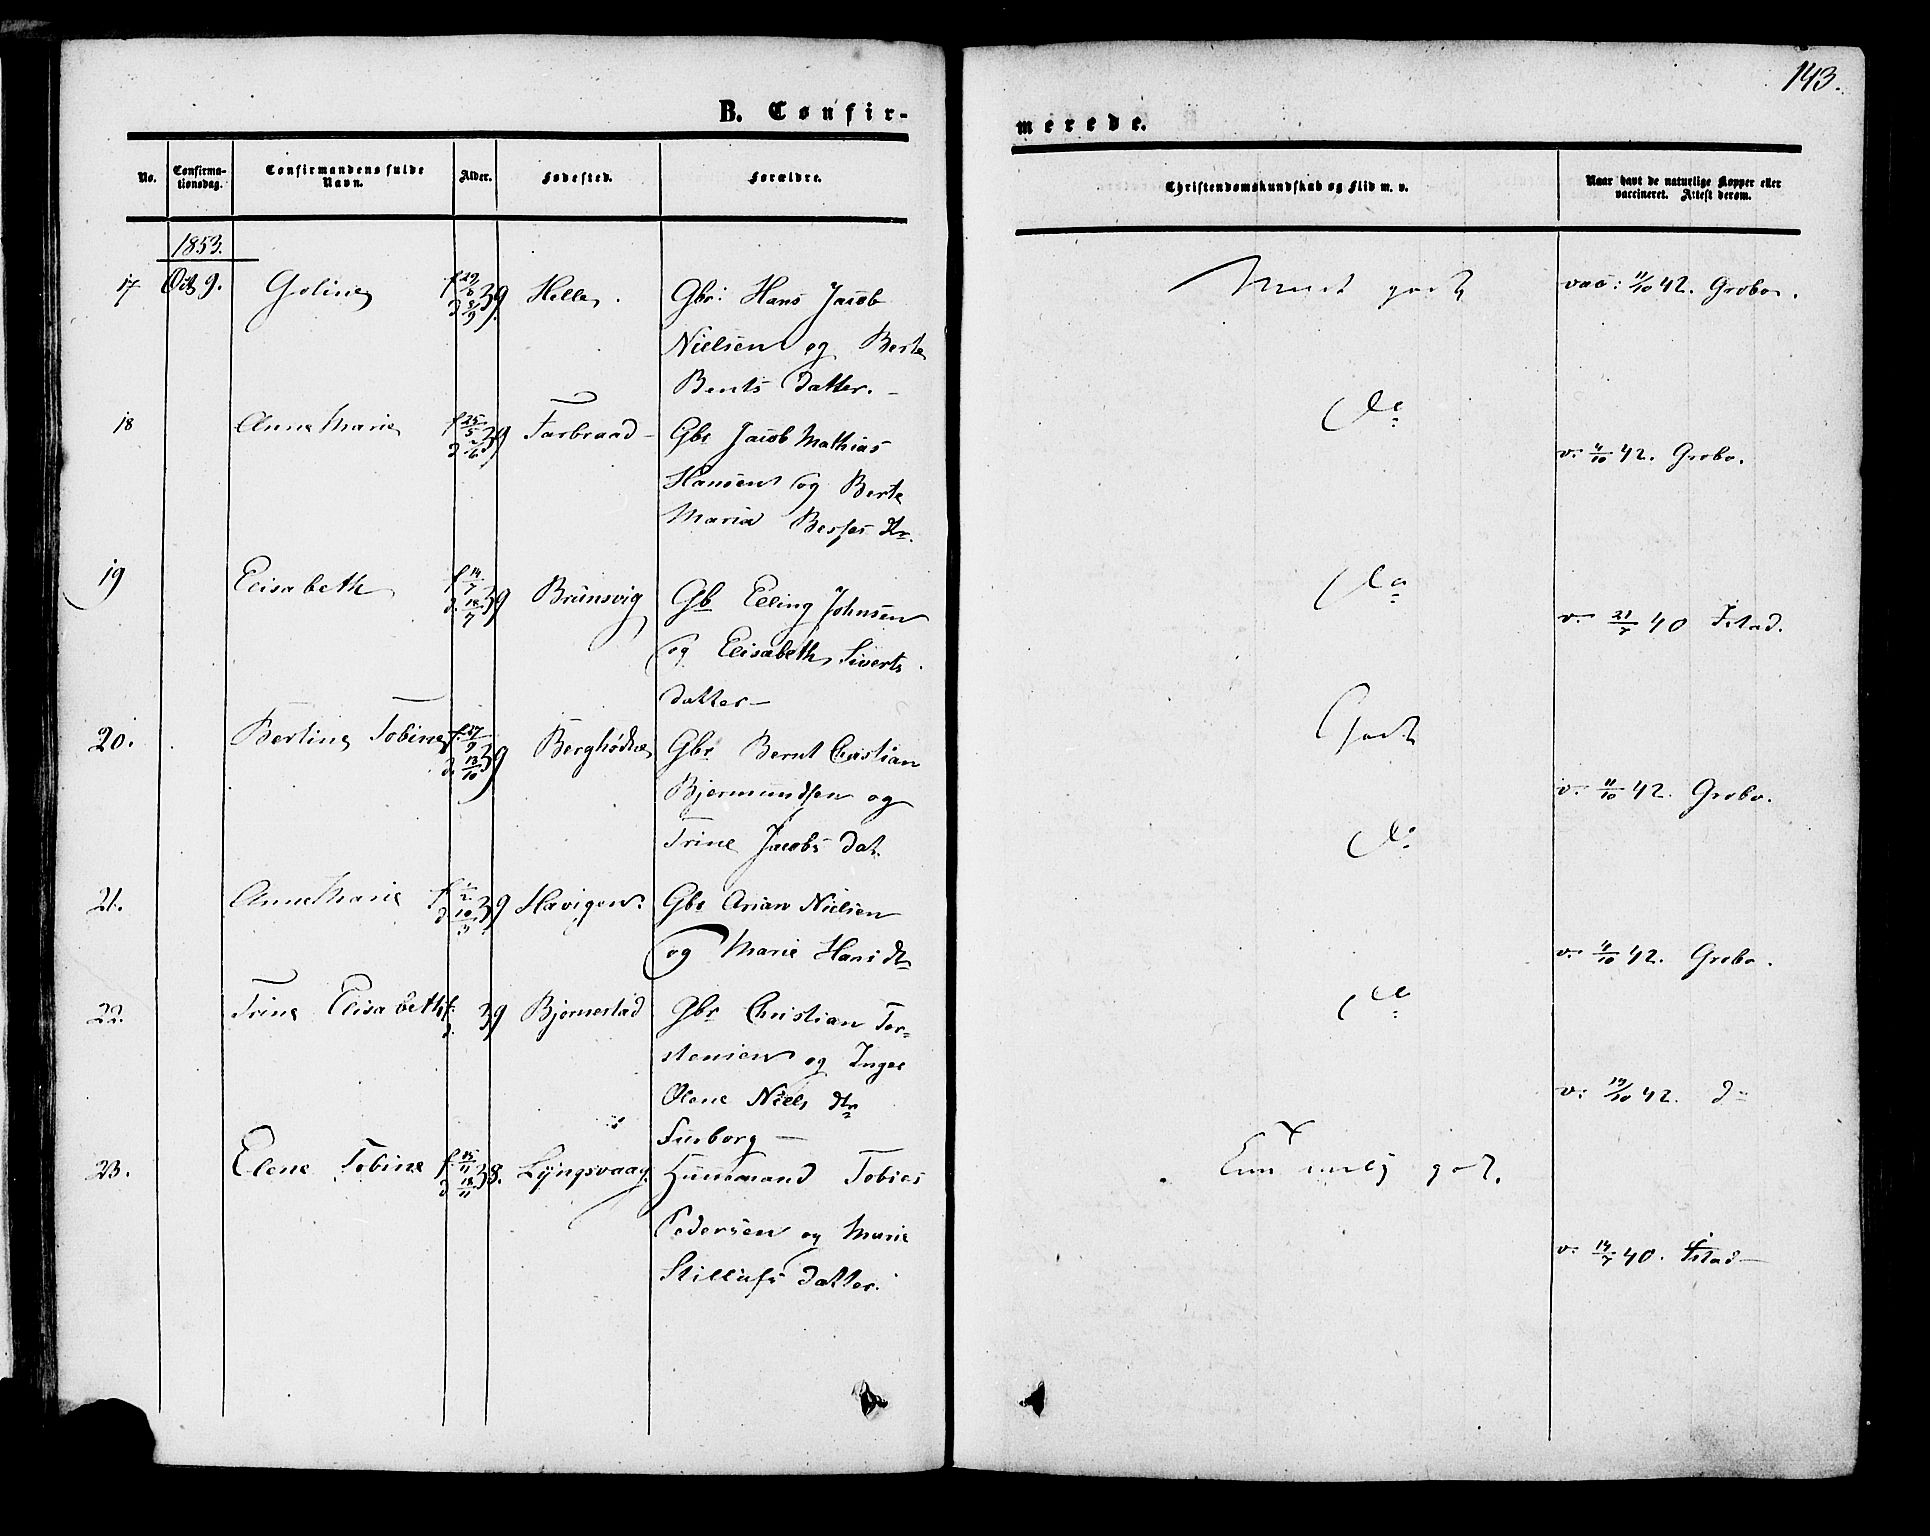 143.
B. Confir-
merede.
No.
Confirma-
tionsdag.
Confirmandens fulde
Navn.
Alder.
Fødested.
Forældre.
Christendomskundskab og Flid m. v.
Naar havt de naturlige Kopper eller
vaccineret. Attest derom.
1853.
17 Oct 9. Goline f 29/8 39 Helle. Gbr: Hans Jacob
Nielsen og Berte
Bents datter.
godt
vac: 11/10 42. Grobo.
18 Anne Marie f 25/5 39 Farbraad Gbr Jacob Mathias
Hansen og Berte
Maria
do
v. 11/10 42. Grobo.
19 Elisabeth f 14/7 d. 18/7 39 Brunsvig Gb Elling Johnsen
og Elisabeth Siverts
datter
do
v. 21/7 40
20. Bertine Tobine f. 17/9 d. 13/10 39 Gbr Bernt Cristian
Bjørmundsen og
Trine Jacobs dat.
Godt
v. 11/10 42. Grobo.
21. Anne Marie d 10/3 39 Havigen. Gbr Arian Nielsen
og Marie Hans dtr
do
v. 11/10 42. Grobo.
22. Trine Elisabeth f. d. 39 Bjørnestad Gbr Christian Tor-
stensen og Inger
Olene Niels dtr
do
v. 19/10 42. do
23. Elene Tobine f. 15/11 d 18/11 38. Lyngsvaag. Huusmand Tobias
Pedersen og Marie
datter.
godt.
v. 14/7 40.